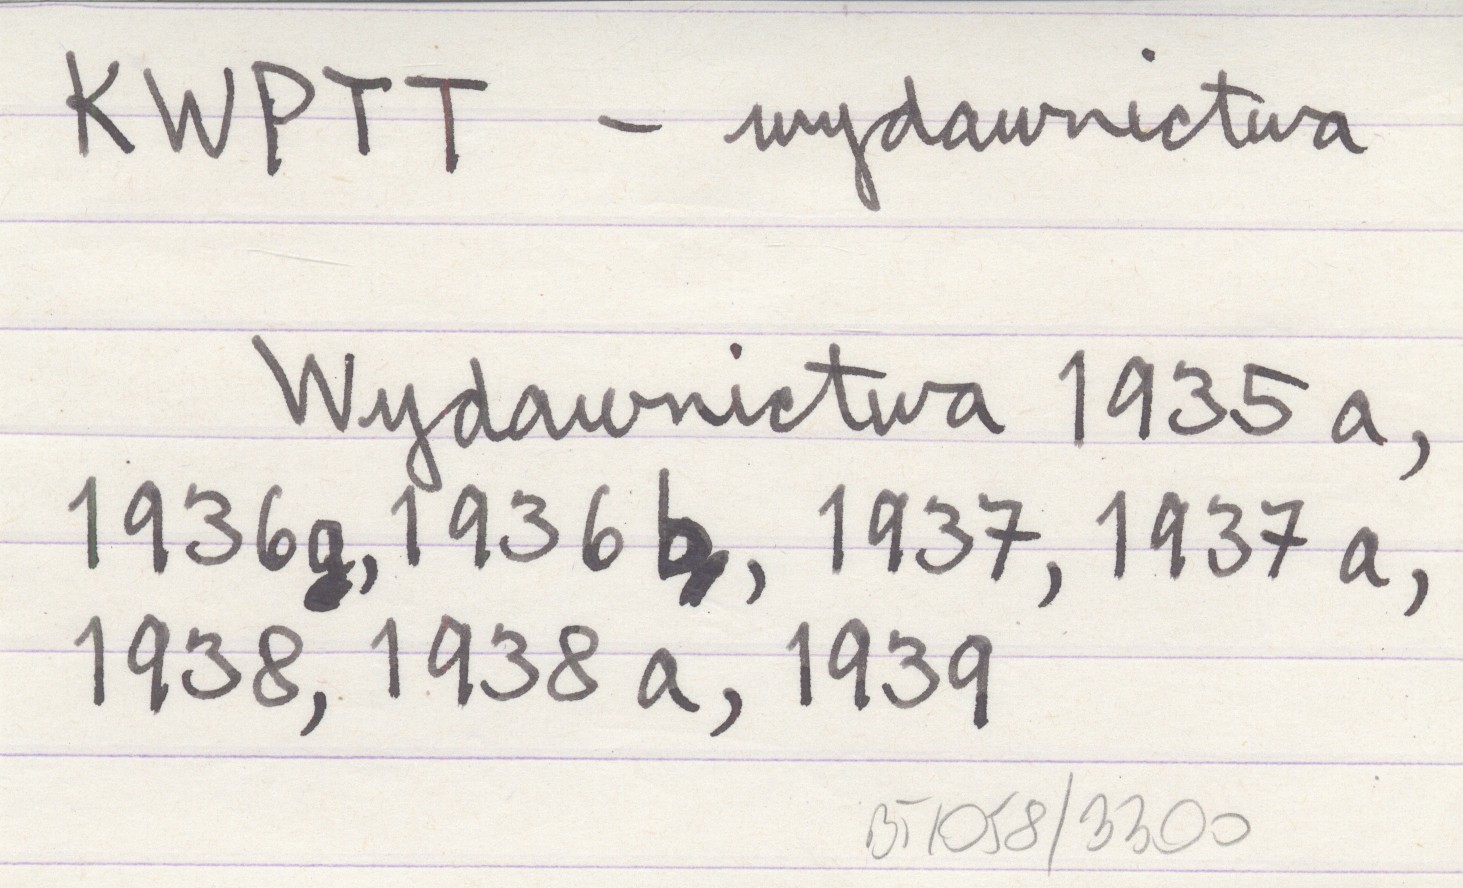 KWPTT - wydawnictwa
Wydawnictwa 1935 a,
1936a, 1936 b, 1937, 1937 a,
1938, 1938 a, 1939
BT1058/3300